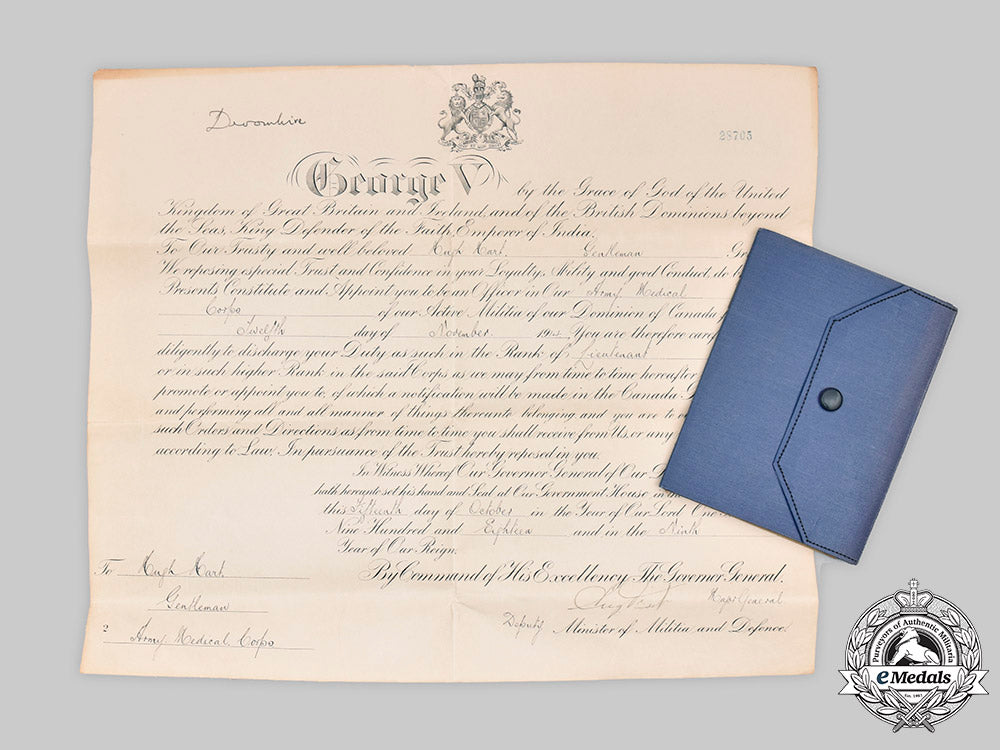 Devonshire
28705
George V by the Grace of God of the United
Kingdom of Great Britain and Ireland, and of the British Dominions beyond
the Seas, King Defender of the Faith, Emperor of India.
To Our Trusty and well beloved Hugh Hart. Gentleman Gr
We reposing especial Trust and Confidence in your Loyalty, Ability and good Conduct, do b
Presents Constitute and Appoint you to be an Officer in Our Army Medical
Corps of our Active Militia of our Dominion of Canada
Twelfth day of November. You are therefore care
diligently to discharge your Duty as such in the Rank of Lieutenant
or in such higher Rank in the said Corps as we may from time to time hereafter
promote or appoint you to, of which a notification will be made in the Canada
and performing all and all manner of things thereunto belonging and you are to
such Orders and Directions, as from time to time you shall receive from Us, or any
according to Law, In pursuance of the Trust hereby reposed in you.
In Witness Whereof Our Governor General of Our
hath hereunto set his hand and Seal at Our Government House in
this Fifteenth day of October in the Year of Our Lord One
Nine Hundred and Eighteen and in the Ninth
Year of Our Reign.
By Command of His Excellency, The Governor General.
Major General
Deputy Minister of Militia and Defence
To Hugh Hart
Gentleman
2
Army Medical Corps
Purveyors of Authentic Militaria
eMedals